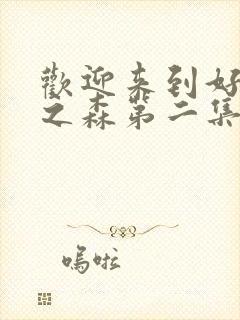 歡迎来到好
之森第二集
嗚啦